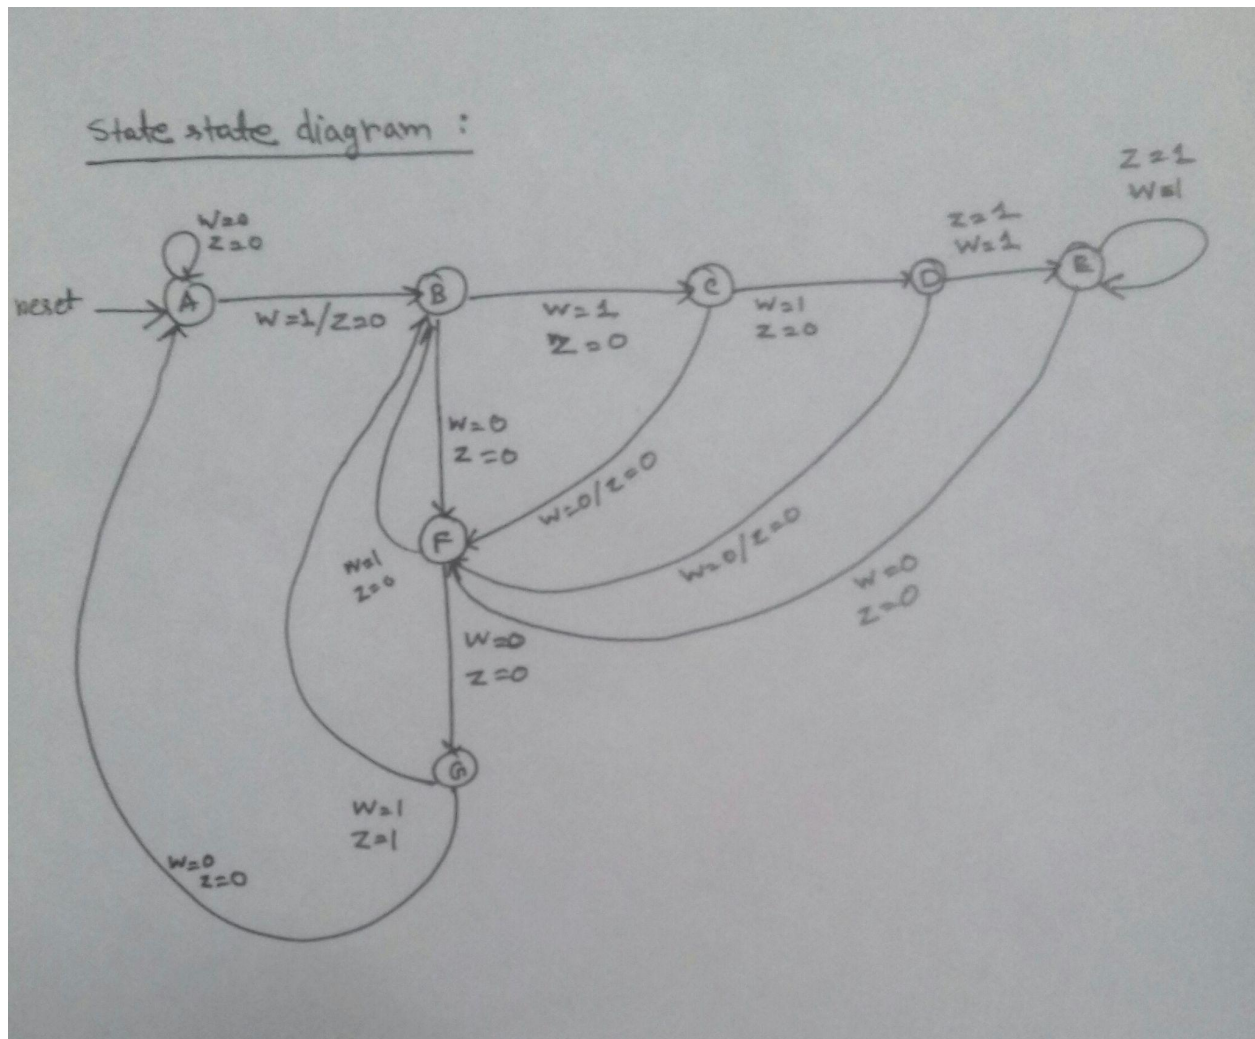 State state diagram :
Z=1
W=1
W=0
Z=0
Z=1
W=1
reset
A
B
C
D
E
W=1/Z=0
W=1
Z=0
W=1
Z=0
W=0
Z=0
W=0/Z=0
F
W=0/Z=0
W=1
Z=0
W=0
Z=0
W=0
Z=0
G
W=1
Z=1
W=0
Z=0